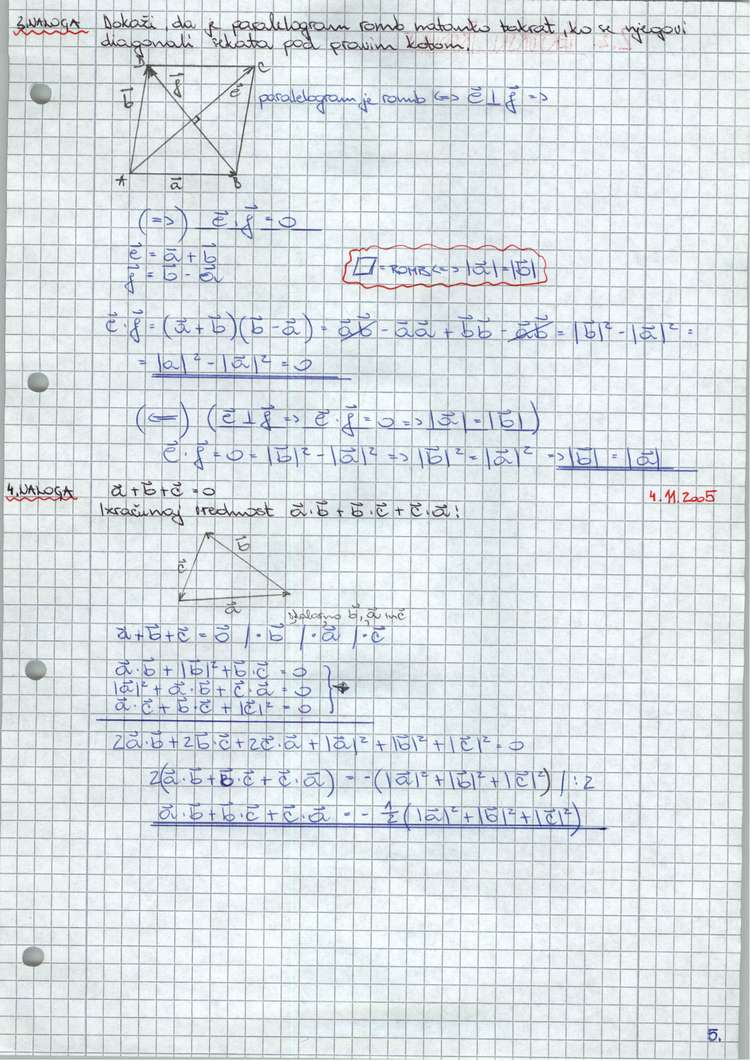 3. NALOGA Dokaži, da je paralelogram romb natanko takrat, ko se njegovi
diagonali sekata pod pravim kotom.
D C
f⃗ e⃗
b⃗
paralelogram je romb <=> e⃗ ⊥ f⃗ =>
A a⃗ B
(=>) e⃗·f⃗ = 0
e⃗ = a⃗ + b⃗
f⃗ = b⃗ - a⃗
▱ = ROMB <=> |a⃗| = |b⃗|
e⃗·f⃗ = (a⃗+b⃗)(b⃗-a⃗) = a⃗b⃗ - a⃗a⃗ + b⃗b⃗ - a⃗b⃗ = |b⃗|² - |a⃗|² =
= |a|² - |a⃗|² = 0
(<=) (e⃗⊥f⃗ => e⃗·f⃗ = 0 => |a⃗| = |b⃗|)
e⃗·f⃗ = 0 = |b⃗|² - |a⃗|² => |b⃗|² = |a⃗|² => |b⃗| = |a⃗|
4. NALOGA a⃗+b⃗+c⃗ = 0
4.11.2005
Izračunaj vrednost a⃗·b⃗ + b⃗·c⃗ + c⃗·a⃗!
b⃗
c⃗
a⃗
skalarno b⃗, a⃗ in c⃗
a⃗+b⃗+c⃗ = 0⃗ /·b⃗ /·a⃗ /·c⃗
a⃗·b⃗ + |b⃗|² + b⃗·c⃗ = 0
|a⃗|² + a⃗·b⃗ + c⃗·a⃗ = 0 } +
a⃗·c⃗ + b⃗·c⃗ + |c⃗|² = 0
2a⃗·b⃗ + 2b⃗·c⃗ + 2c⃗·a⃗ + |a⃗|² + |b⃗|² + |c⃗|² = 0
2(a⃗·b⃗ + b⃗·c⃗ + c⃗·a⃗) = -(|a⃗|² + |b⃗|² + |c⃗|²) /:2
a⃗·b⃗ + b⃗·c⃗ + c⃗·a⃗ = -1/2(|a⃗|² + |b⃗|² + |c⃗|²)
5.